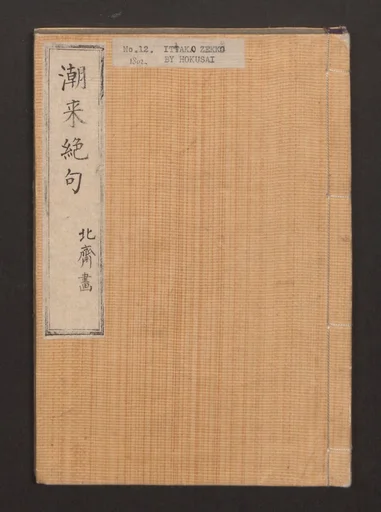 潮来絶句
北齋畫
No.12. ITTAKO ZEKKU
1802. BY HOKUSAI